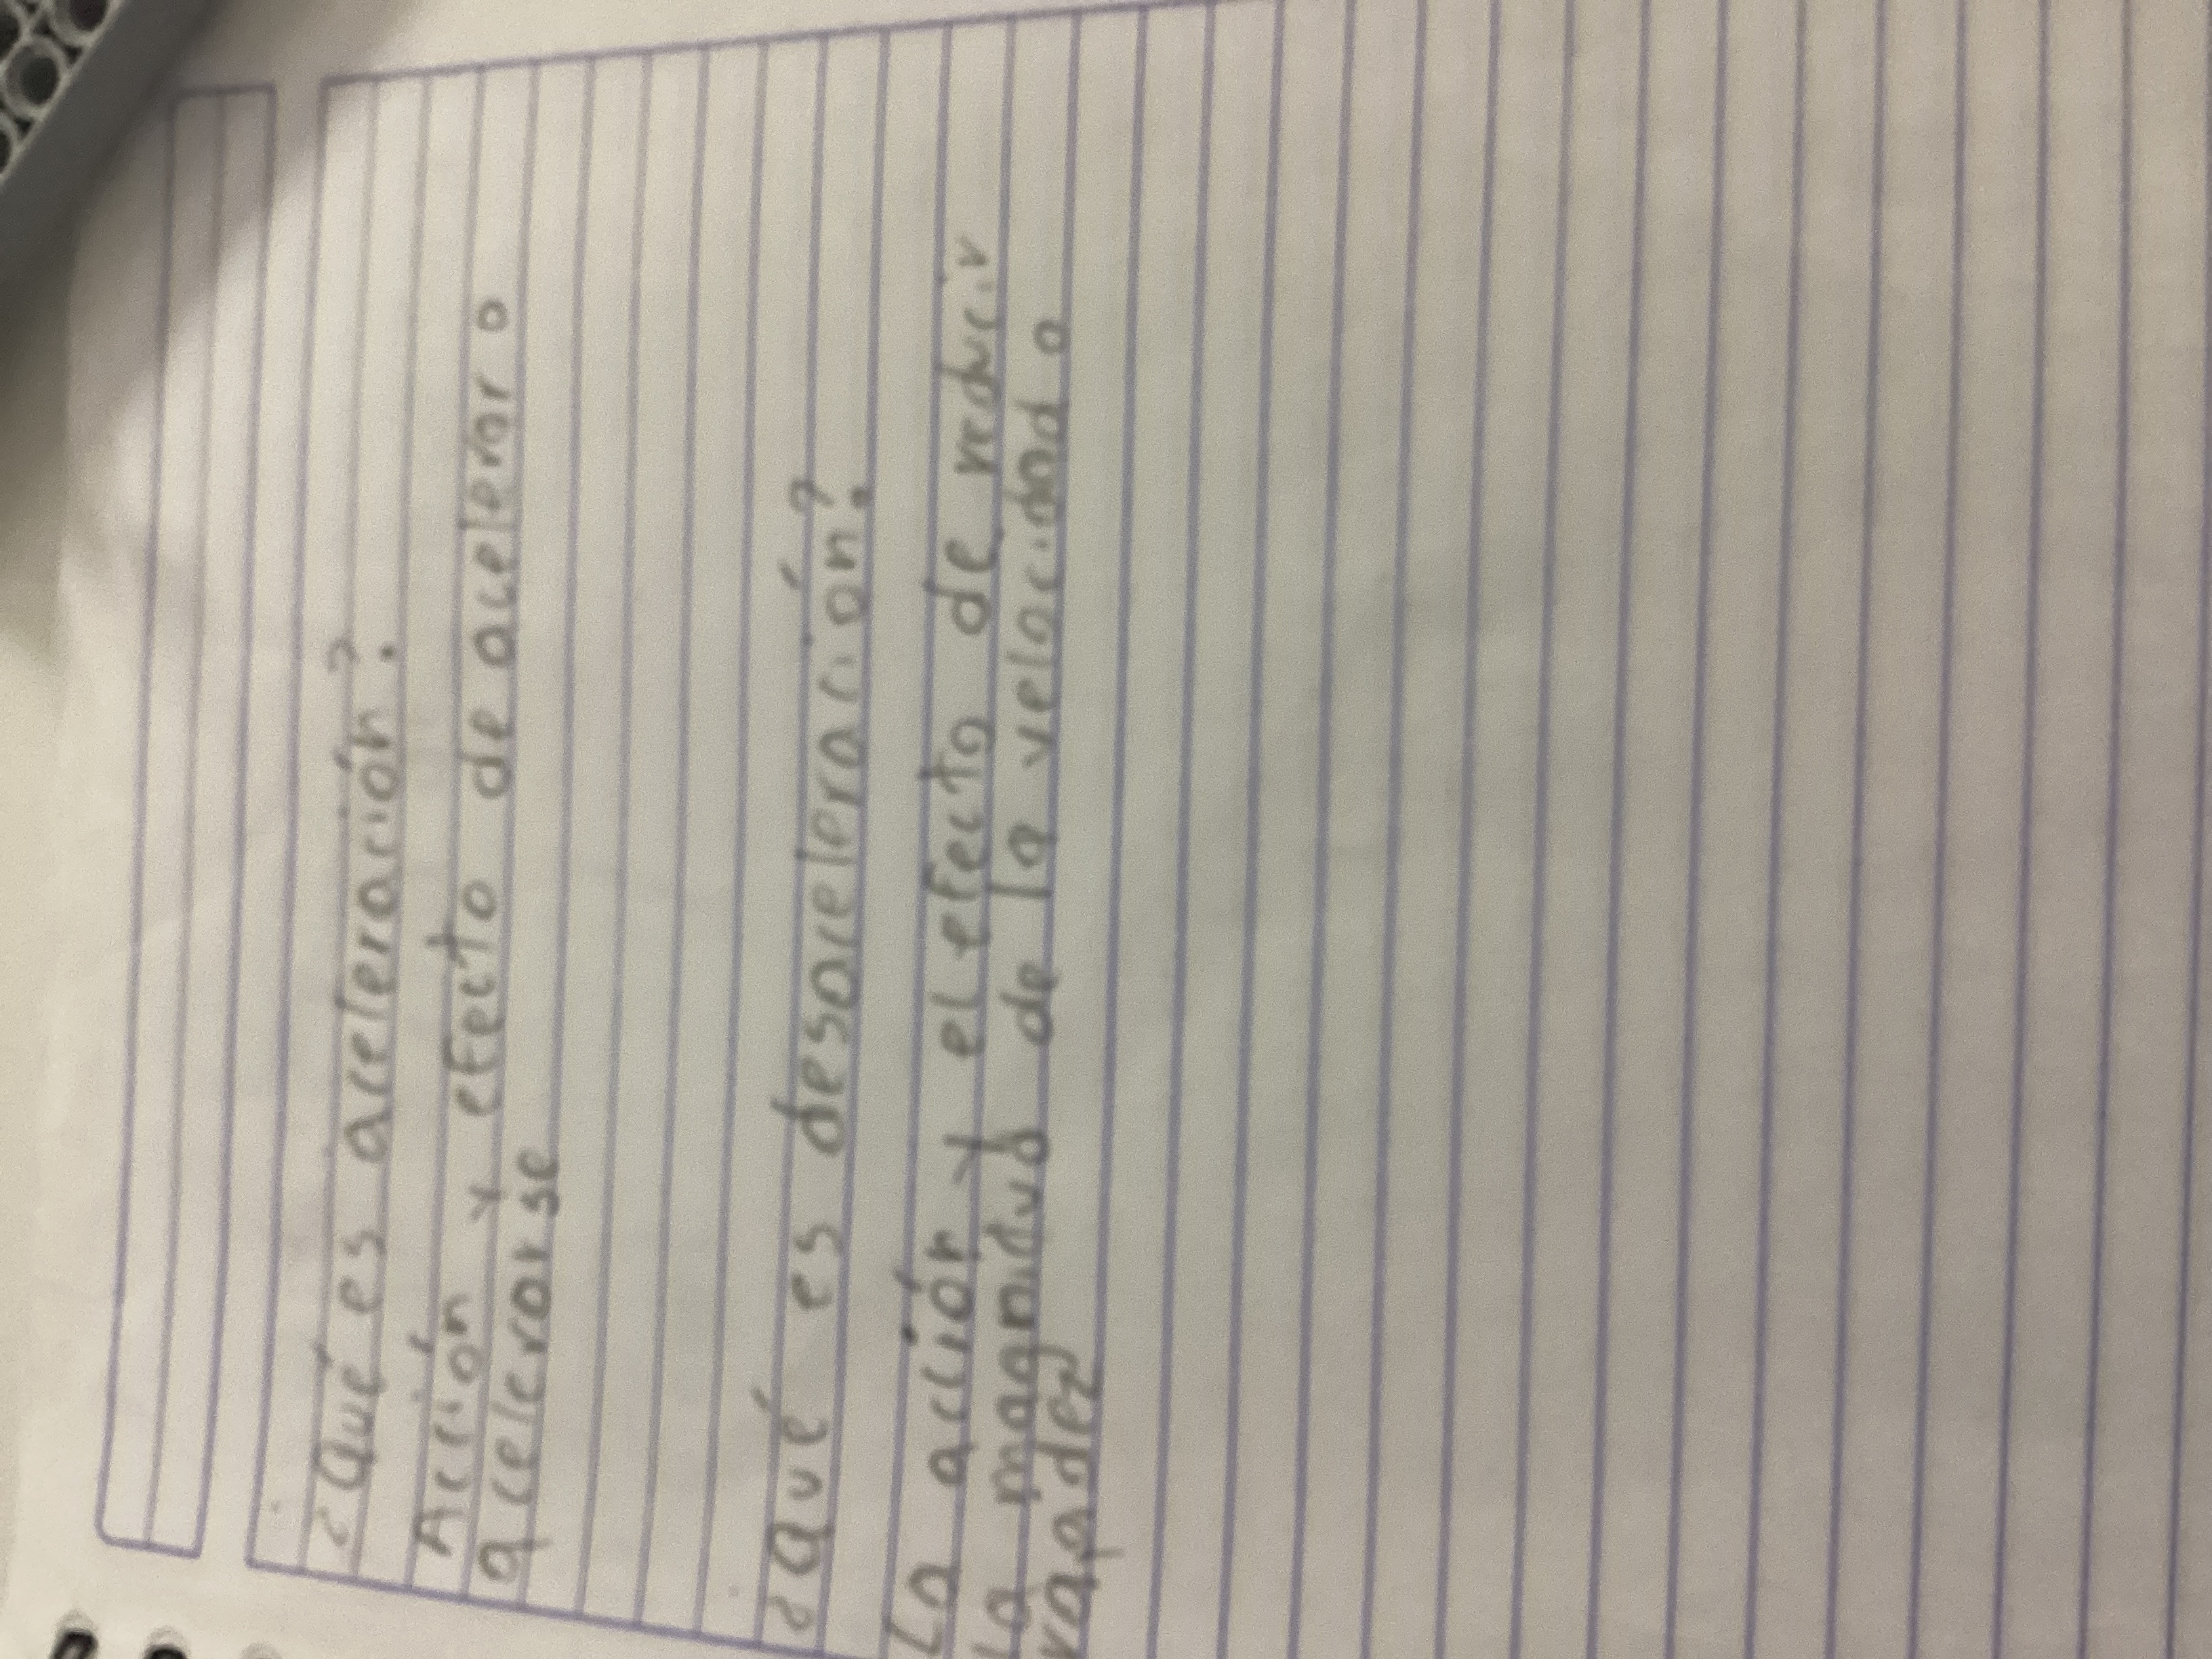 ¿Qué es aceleración?
Acción y efecto de acelerar o
acelerarse
¿Qué es desaceleración?
La acción y el efecto de reducir
la magnidud de la velocidad o
rapidez